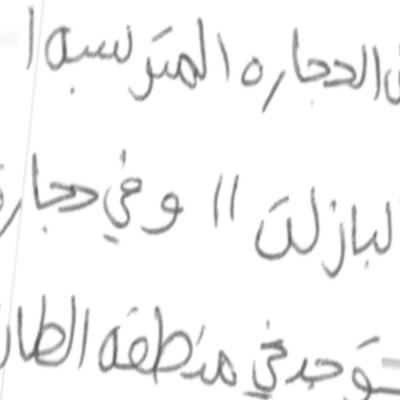 الحجاره المترسبه ا
البازلت " وفي حجار
توجد في منطقه الطا